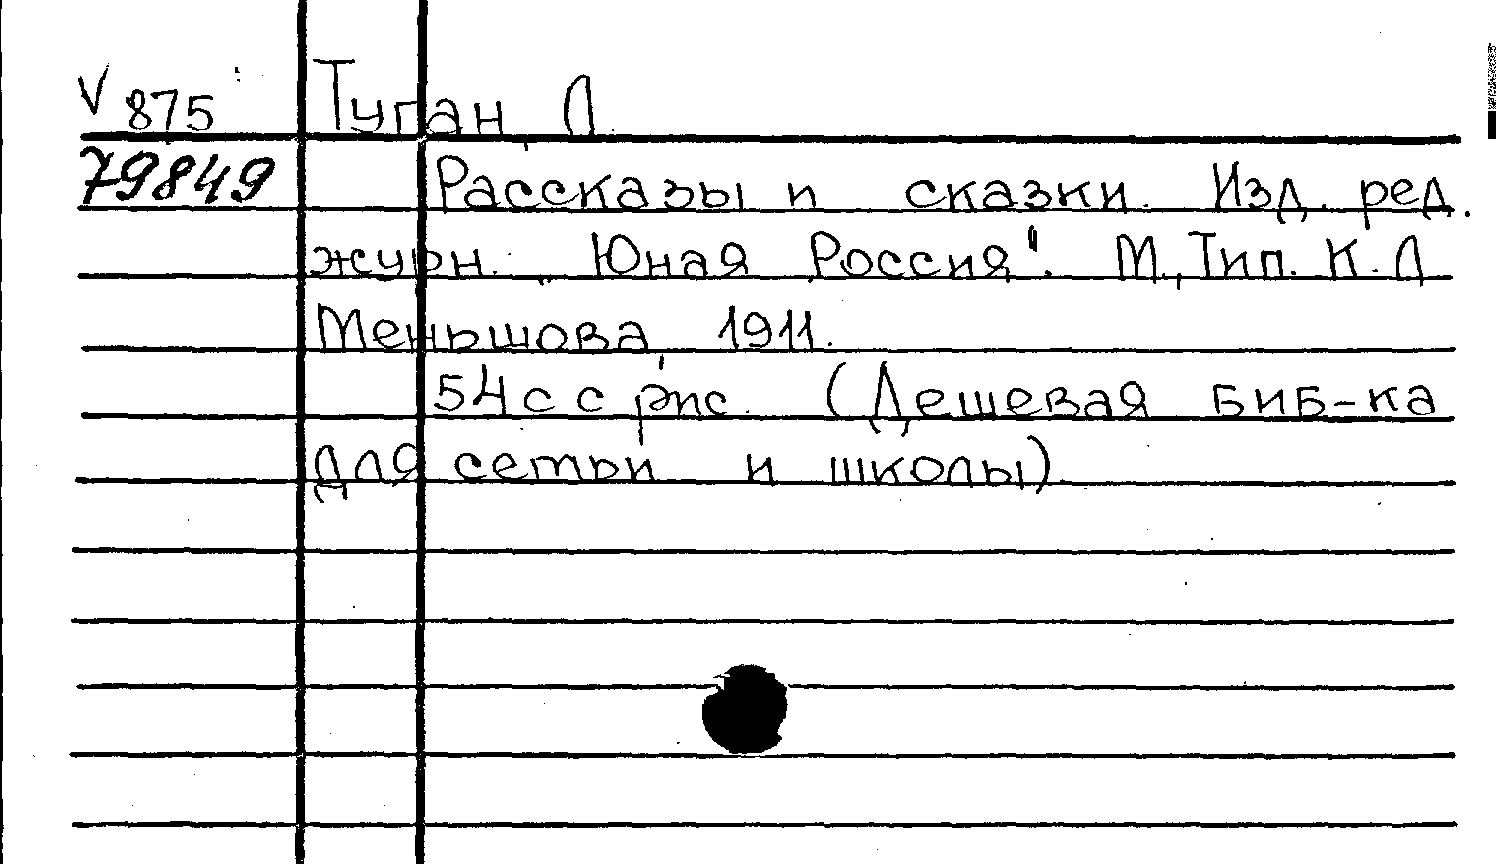 V 875 Туган, Л.
79849 Рассказы и сказки. Изд. ред.
журн. „Юная Россия". М., Тип. К. Л.
Меньшова, 1911.
54 с с рис. (Дешевая биб-ка
для семьи и школы).